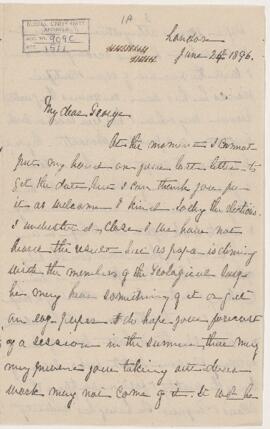 1A
McGILL UNIVERSITY
ARCHIVES
ACC. NO. 909C
REF.
London
June 24th 1896.
My dear George
At the moment I cannot
put my hand on your last letter to
get the date but I can thank you for
it as welcome & kind. Today the elections.
I understand close & we have not
heard the result but as papa is dining
with the members of the Geological Surv.
he may hear something of it or get
an eve. paper. I do hope your forecast
of a session in the summer that may
may prevent your taking out door
work may not come of it. It will be